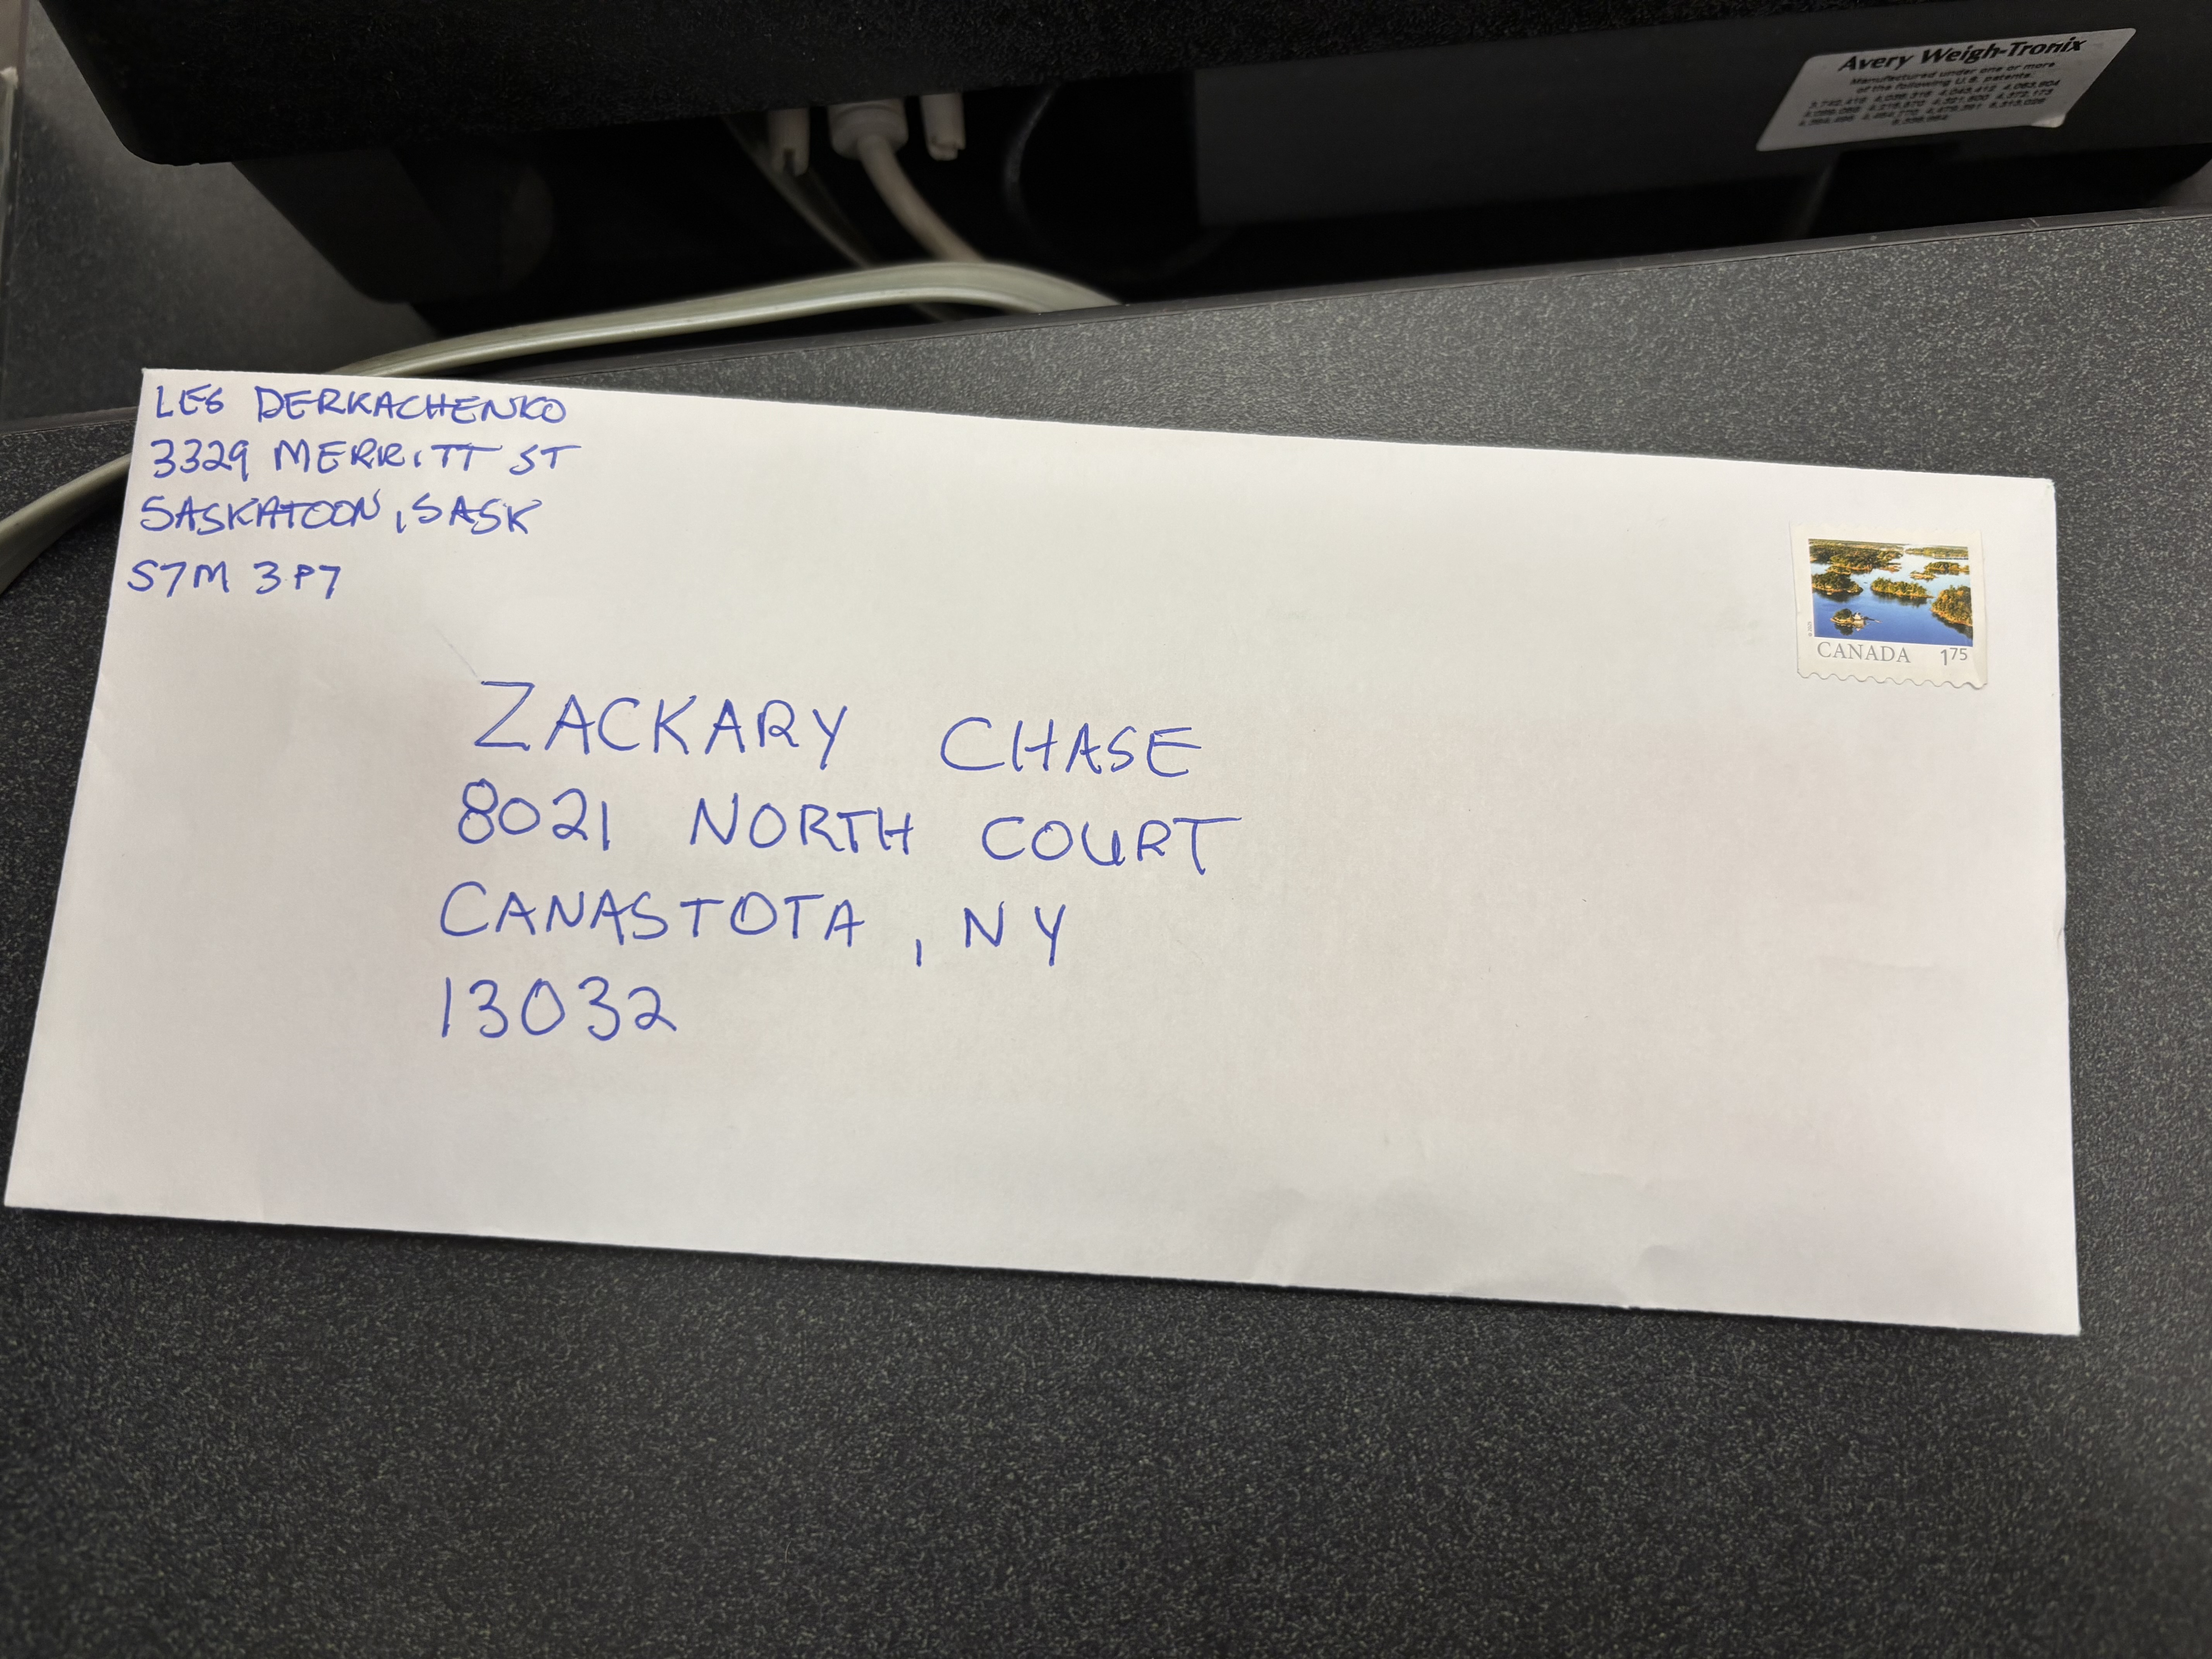 Avery Weigh-Tronix
Manufactured under one or more
of the following U.S. patents:
LES DERKACHENKO
3329 MERRITT ST
SASKATOON, SASK
S7M 3P7
CANADA 175
ZACKARY CHASE
8021 NORTH COURT
CANASTOTA, NY
13032